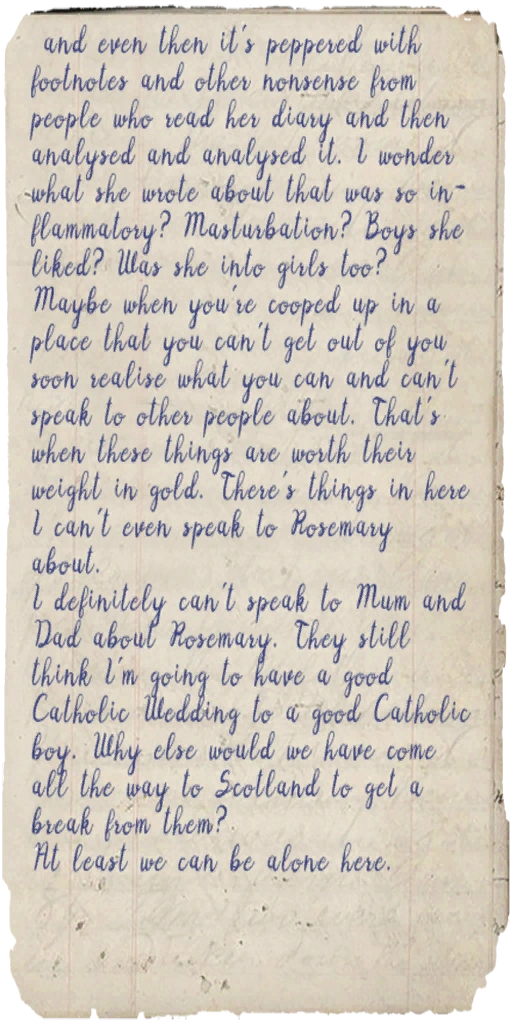 and even then it's peppered with
footnotes and other nonsense from
people who read her diary and then
analysed and analysed it. I wonder
what she wrote about that was so in-
flammatory? Masturbation? Boys she
liked? Was she into girls too?
Maybe when you're cooped up in a
place that you can't get out of you
soon realise what you can and can't
speak to other people about. That's
when these things are worth their
weight in gold. There's things in here
I can't even speak to Rosemary
about.
I definitely can't speak to Mum and
Dad about Rosemary. They still
think I'm going to have a good
Catholic Wedding to a good Catholic
boy. Why else would we have come
all the way to Scotland to get a
break from them?
At least we can be alone here.